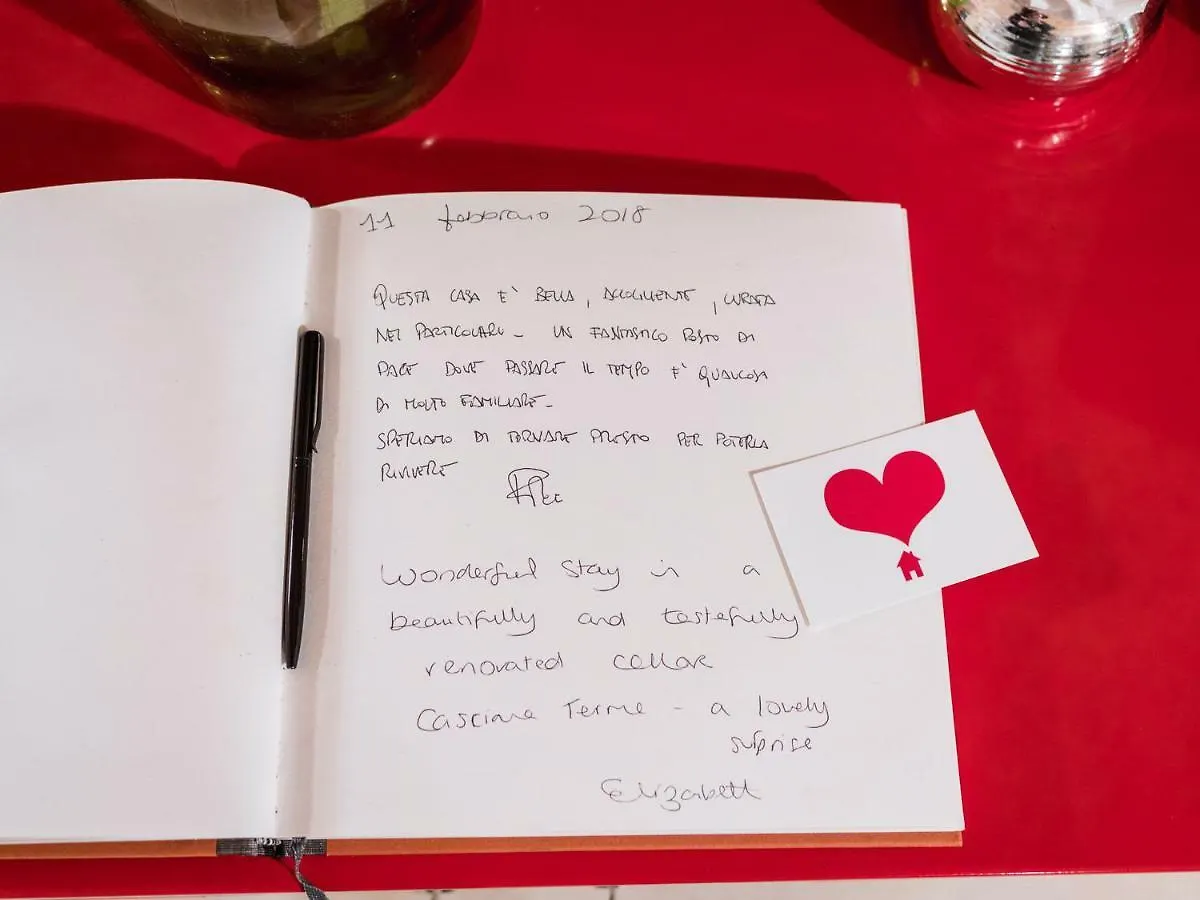 11 febbraio 2018
QUESTA CASA E' BELLA, ACCOGLIENTE, CURATA
NEI PARTICOLARI - UN FANTASTICO POSTO DI
PACE DOVE PASSARE IL TEMPO E' QUALCOSA
DI MOLTO FAMILIARE -
SPERIAMO DI TORNARE PRESTO PER POTERLA
RIVIVERE
Wonderful stay in a
beautifully and tastefully
renovated cellar
Casciana Terme - a lovely
suprise
Elizabeth